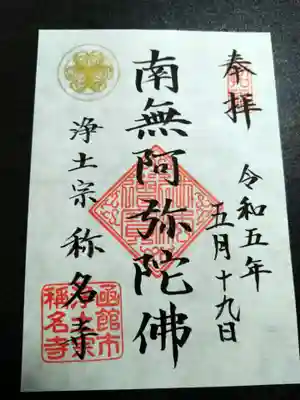 奉拝
令和五年
五月十九日
南無阿弥陀佛
浄土宗称名寺
函館市
稱名寺